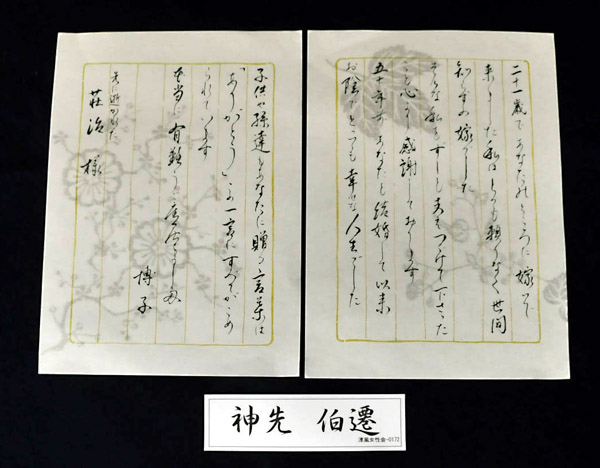 二十一歳であなたのところに嫁いで
来ました 私はとても頼りなく 世間
知らずの嫁でした
そんな私を つづけて下さった
心から感謝しております
五十年 あなたと結婚して以来
お陰でとても幸せな人生でした
子供や孫達とあなたに贈る言葉は
「ありがとう」この一言にすべてがこめ
られています
本当に有難う
博子
先に逝かれた
荘治 様
神先 伯遷
女性会-0172